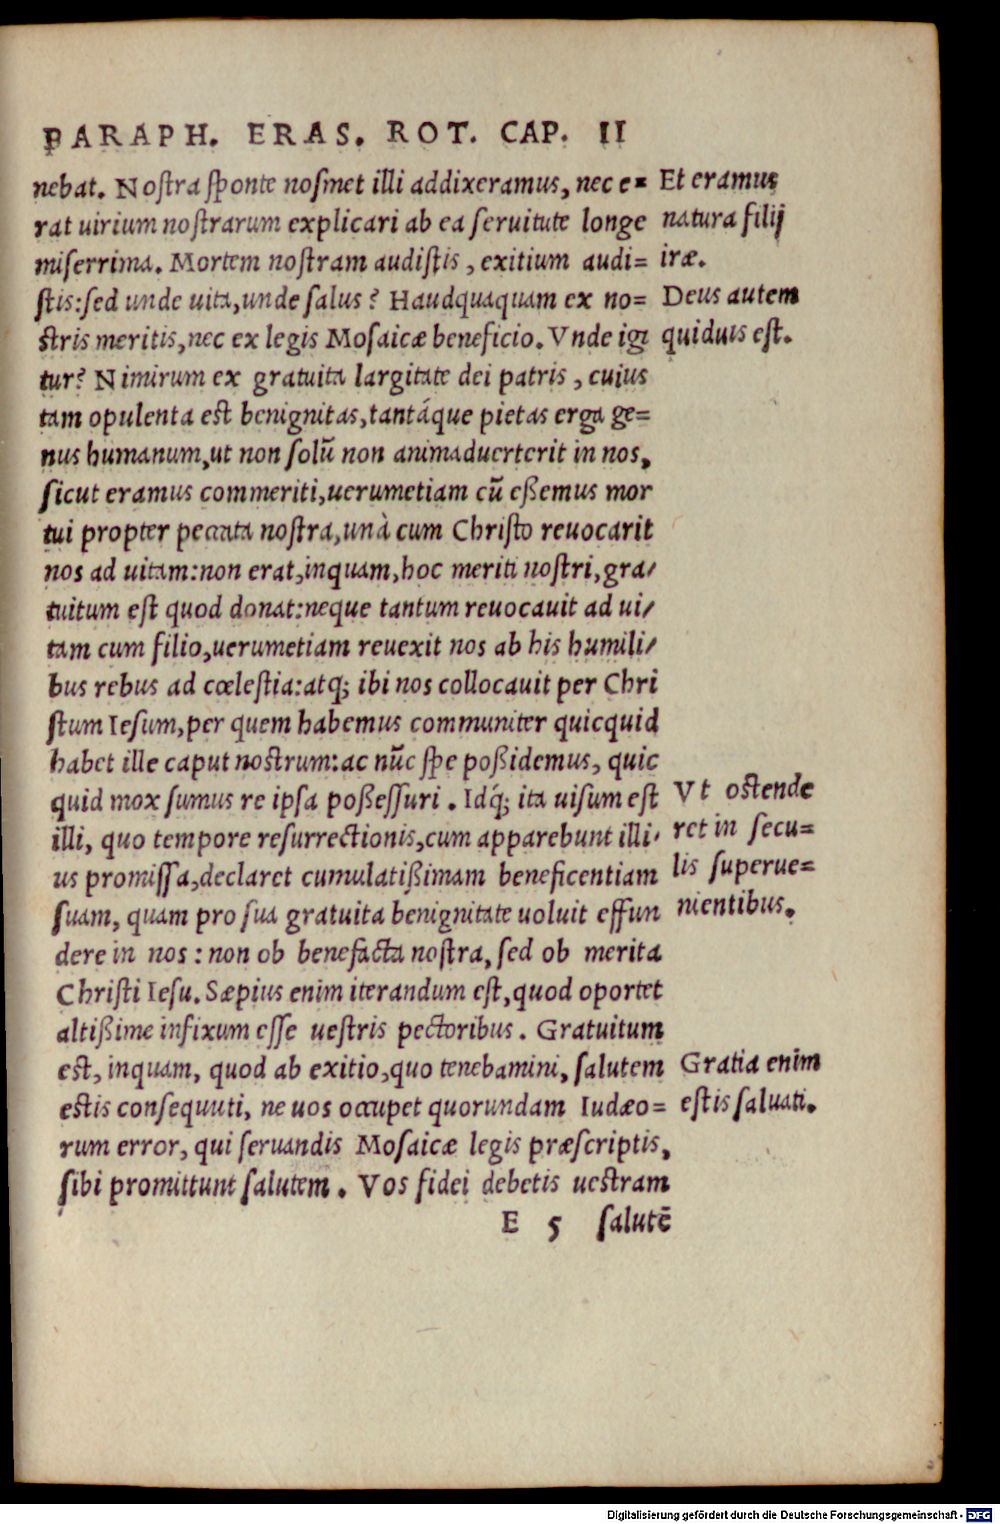 PARAPH. ERAS. ROT. CAP. II
nebat. Nostra sponte nosmet illi addixeramus, nec e=
rat uirium nostrarum explicari ab ea seruitute longe
miserrima. Mortem nostram audistis, exitium audi=
stis: sed unde uita, unde salus? Haudquaquam ex no=
stris meritis, nec ex legis Mosaicæ beneficio. Vnde igi
tur? Nimirum ex gratuita largitate dei patris, cuius
tam opulenta est benignitas, tantáque pietas erga ge=
nus humanum, ut non solũ non animaduerterit in nos,
sicut eramus commeriti, uerumetiam cũ eßemus mor
tui propter peccata nostra, unà cum Christo reuocarit
nos ad uitam: non erat, inquam, hoc meriti nostri, gra/
tuitum est quod donat: neque tantum reuocauit ad ui/
tam cum filio, uerumetiam reuexit nos ab his humili/
bus rebus ad cœlestia: atq; ibi nos collocauit per Chri
stum Iesum, per quem habemus communiter quicquid
habet ille caput nostrum: ac nũc spe poßidemus, quic
quid mox sumus re ipsa poßessuri. Idq́; ita uisum est
illi, quo tempore resurrectionis, cum apparebunt illi/
us promissa, declaret cumulatißimam beneficentiam
suam, quam pro sua gratuita benignitate uoluit effun
dere in nos: non ob benefacta nostra, sed ob merita
Christi Iesu. Sæpius enim iterandum est, quod oportet
altißime infixum esse uestris pectoribus. Gratuitum
est, inquam, quod ab exitio, quo tenebamini, salutem
estis consequuti, ne uos occupet quorundam Iudæo=
rum error, qui seruandis Mosaicæ legis præscriptis,
sibi promittunt salutem. Vos fidei debetis uestram
E 5 salutẽ
Et eramus
natura filij
iræ.
Deus autem
qui diuis est.
Vt ostende
ret in secu=
lis superue=
nientibus.
Gratia enim
estis saluati.
Digitalisierung gefördert durch die Deutsche Forschungsgemeinschaft - DFG